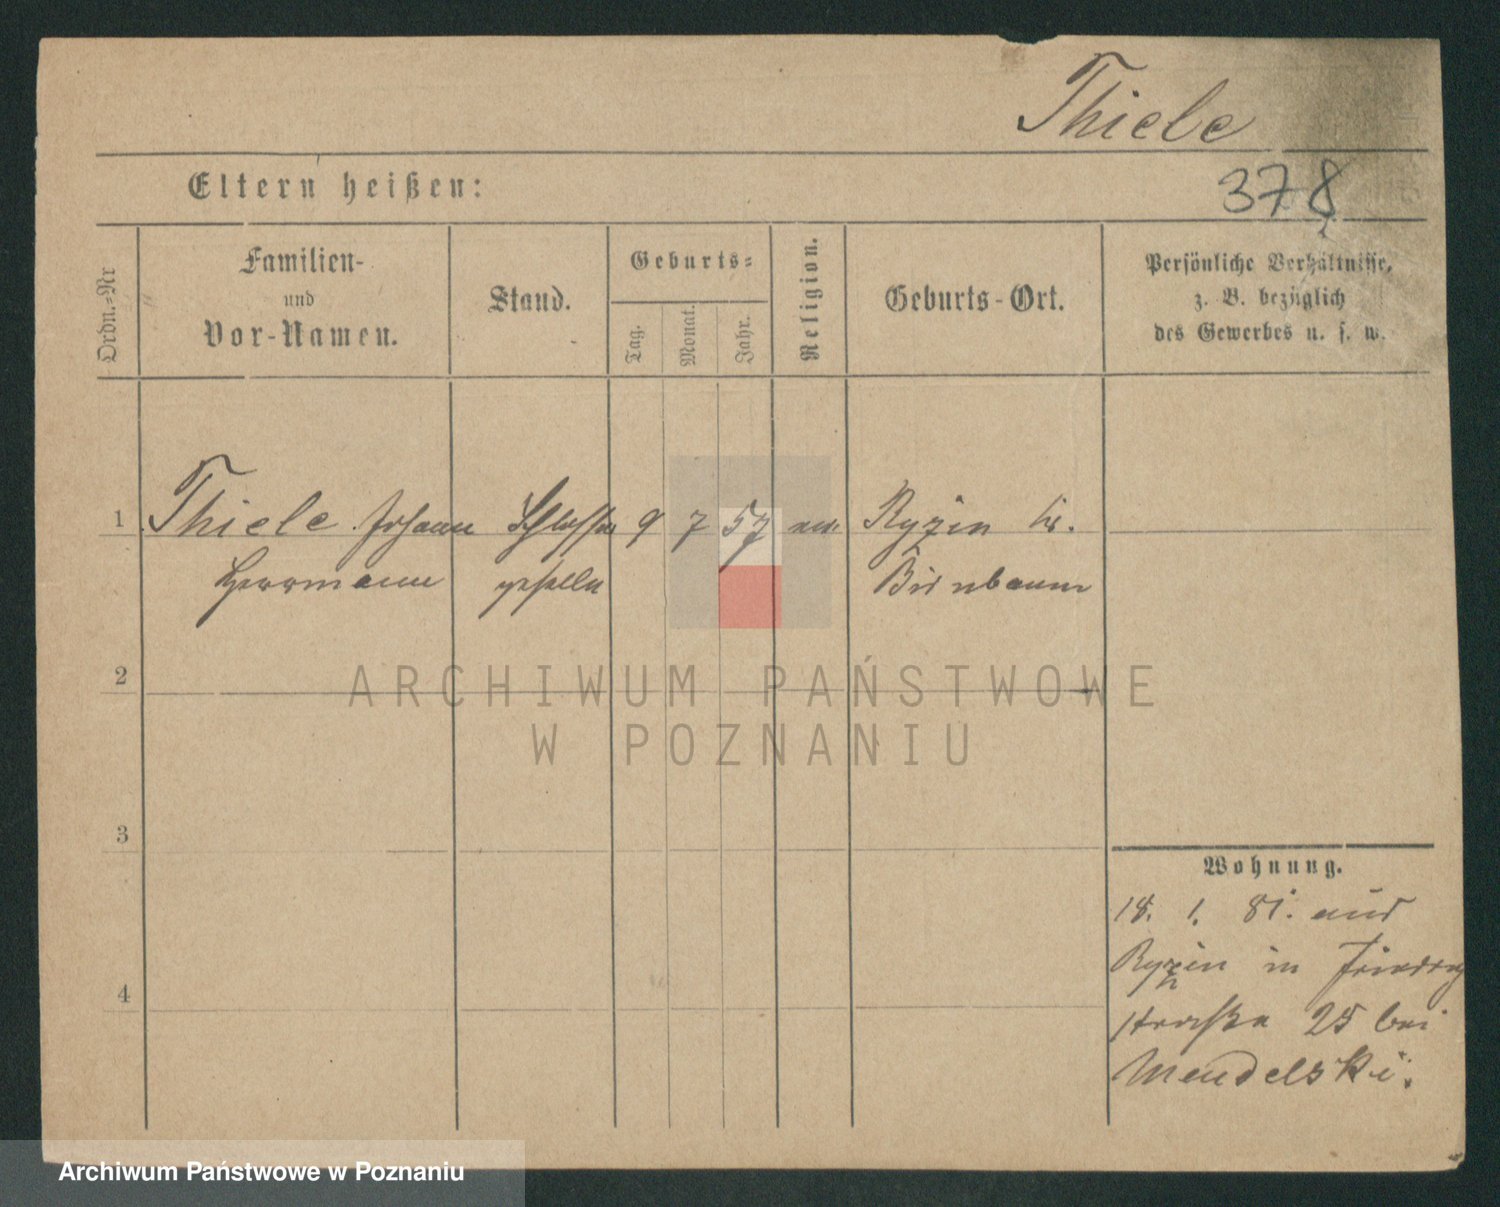 Thiele
Eltern heißen:
378
Ordn.=Nr
Familien-
und
Vor-Namen.
Stand.
Geburts=
Tag.
Monat.
Jahr.
Religion.
Geburts-Ort.
Persönliche Verhältnisse,
z. B. bezüglich
des Gewerbes u. s. w.
1 Thiele Johann Schlosser 9 7 57 Ryzin Kr.
Herrmann geselle Birnbaum
2
ARCHIWUM PAŃSTWOWE
W POZNANIU
3
Wohnung.
18. 1. 81. aus
Ryzin in
4
straße 25 bei
Mendelski.
Archiwum Państwowe w Poznaniu